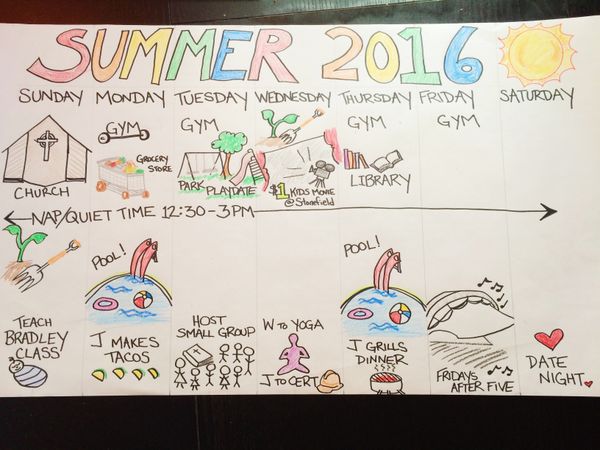 SUMMER 2016
SUNDAY MONDAY TUESDAY WEDNESDAY THURSDAY FRIDAY SATURDAY
GYM
GROCERY
STORE
GYM
PARK PLAYDATE
$1 KIDS MOVIE
@ Stonefield
GYM
LIBRARY
GYM
CHURCH
NAP/QUIET TIME 12:30-3PM
TEACH
BRADLEY
CLASS
POOL!
J MAKES
TACOS
HOST
SMALL GROUP
W to YOGA
J to CERT
POOL!
J GRILLS
DINNER
FRIDAYS
AFTER FIVE
DATE
NIGHT